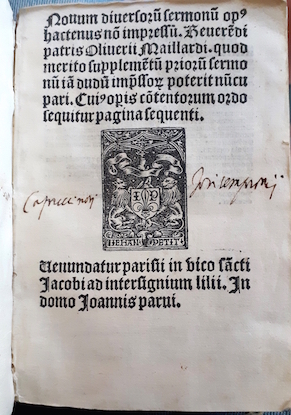 Nouum diuersorũ sermonũ opꝰ
hactenus nõ impressũ. Reuerẽdi
patris Oliuerii Maillardi. quod
merito supplemẽtũ priorũ sermo
nũ iã dudũ imp̃ssoꝝ poterit nũcu
pari. Cuiꝰ opis cõtentorum ordo
sequitur pagina sequenti.
IEHAN PETIT
Uenundatur parisii in vico sãcti
Jacobi ad intersignium lilii. In
domo Joannis parui.